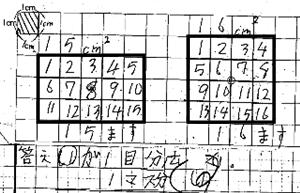 1cm
1cm 1cm
1cm
15cm²
1 2 3 4 5
6 7 8 9 10
11 12 13 14 15
15ます
16cm²
1 2 3 4
5 6 7 8
9 10 11 12
13 14 15 16
16ます
答え
が1目分
1マス分